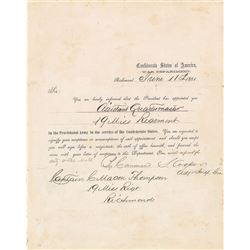 Confederate States of America,
WAR DEPARTMENT,
Richmond, June 11 1861
Sir:
You are hereby informed that the President has appointed you
Assistant Quartermaster
19 Miss Regiment
In the Provisional Army in the service of the Confederate States. You are requested to
signify your acceptance or non-acceptance of said appointment; and should you accept
you will sign before a magistrate, the oath of office herewith, and forward the
same with your letter of acceptance to this Department.
By Command S. Cooper
Adjt & Insp. Gen
Captain C. Macon Thompson
19 Miss Regt
Richmond